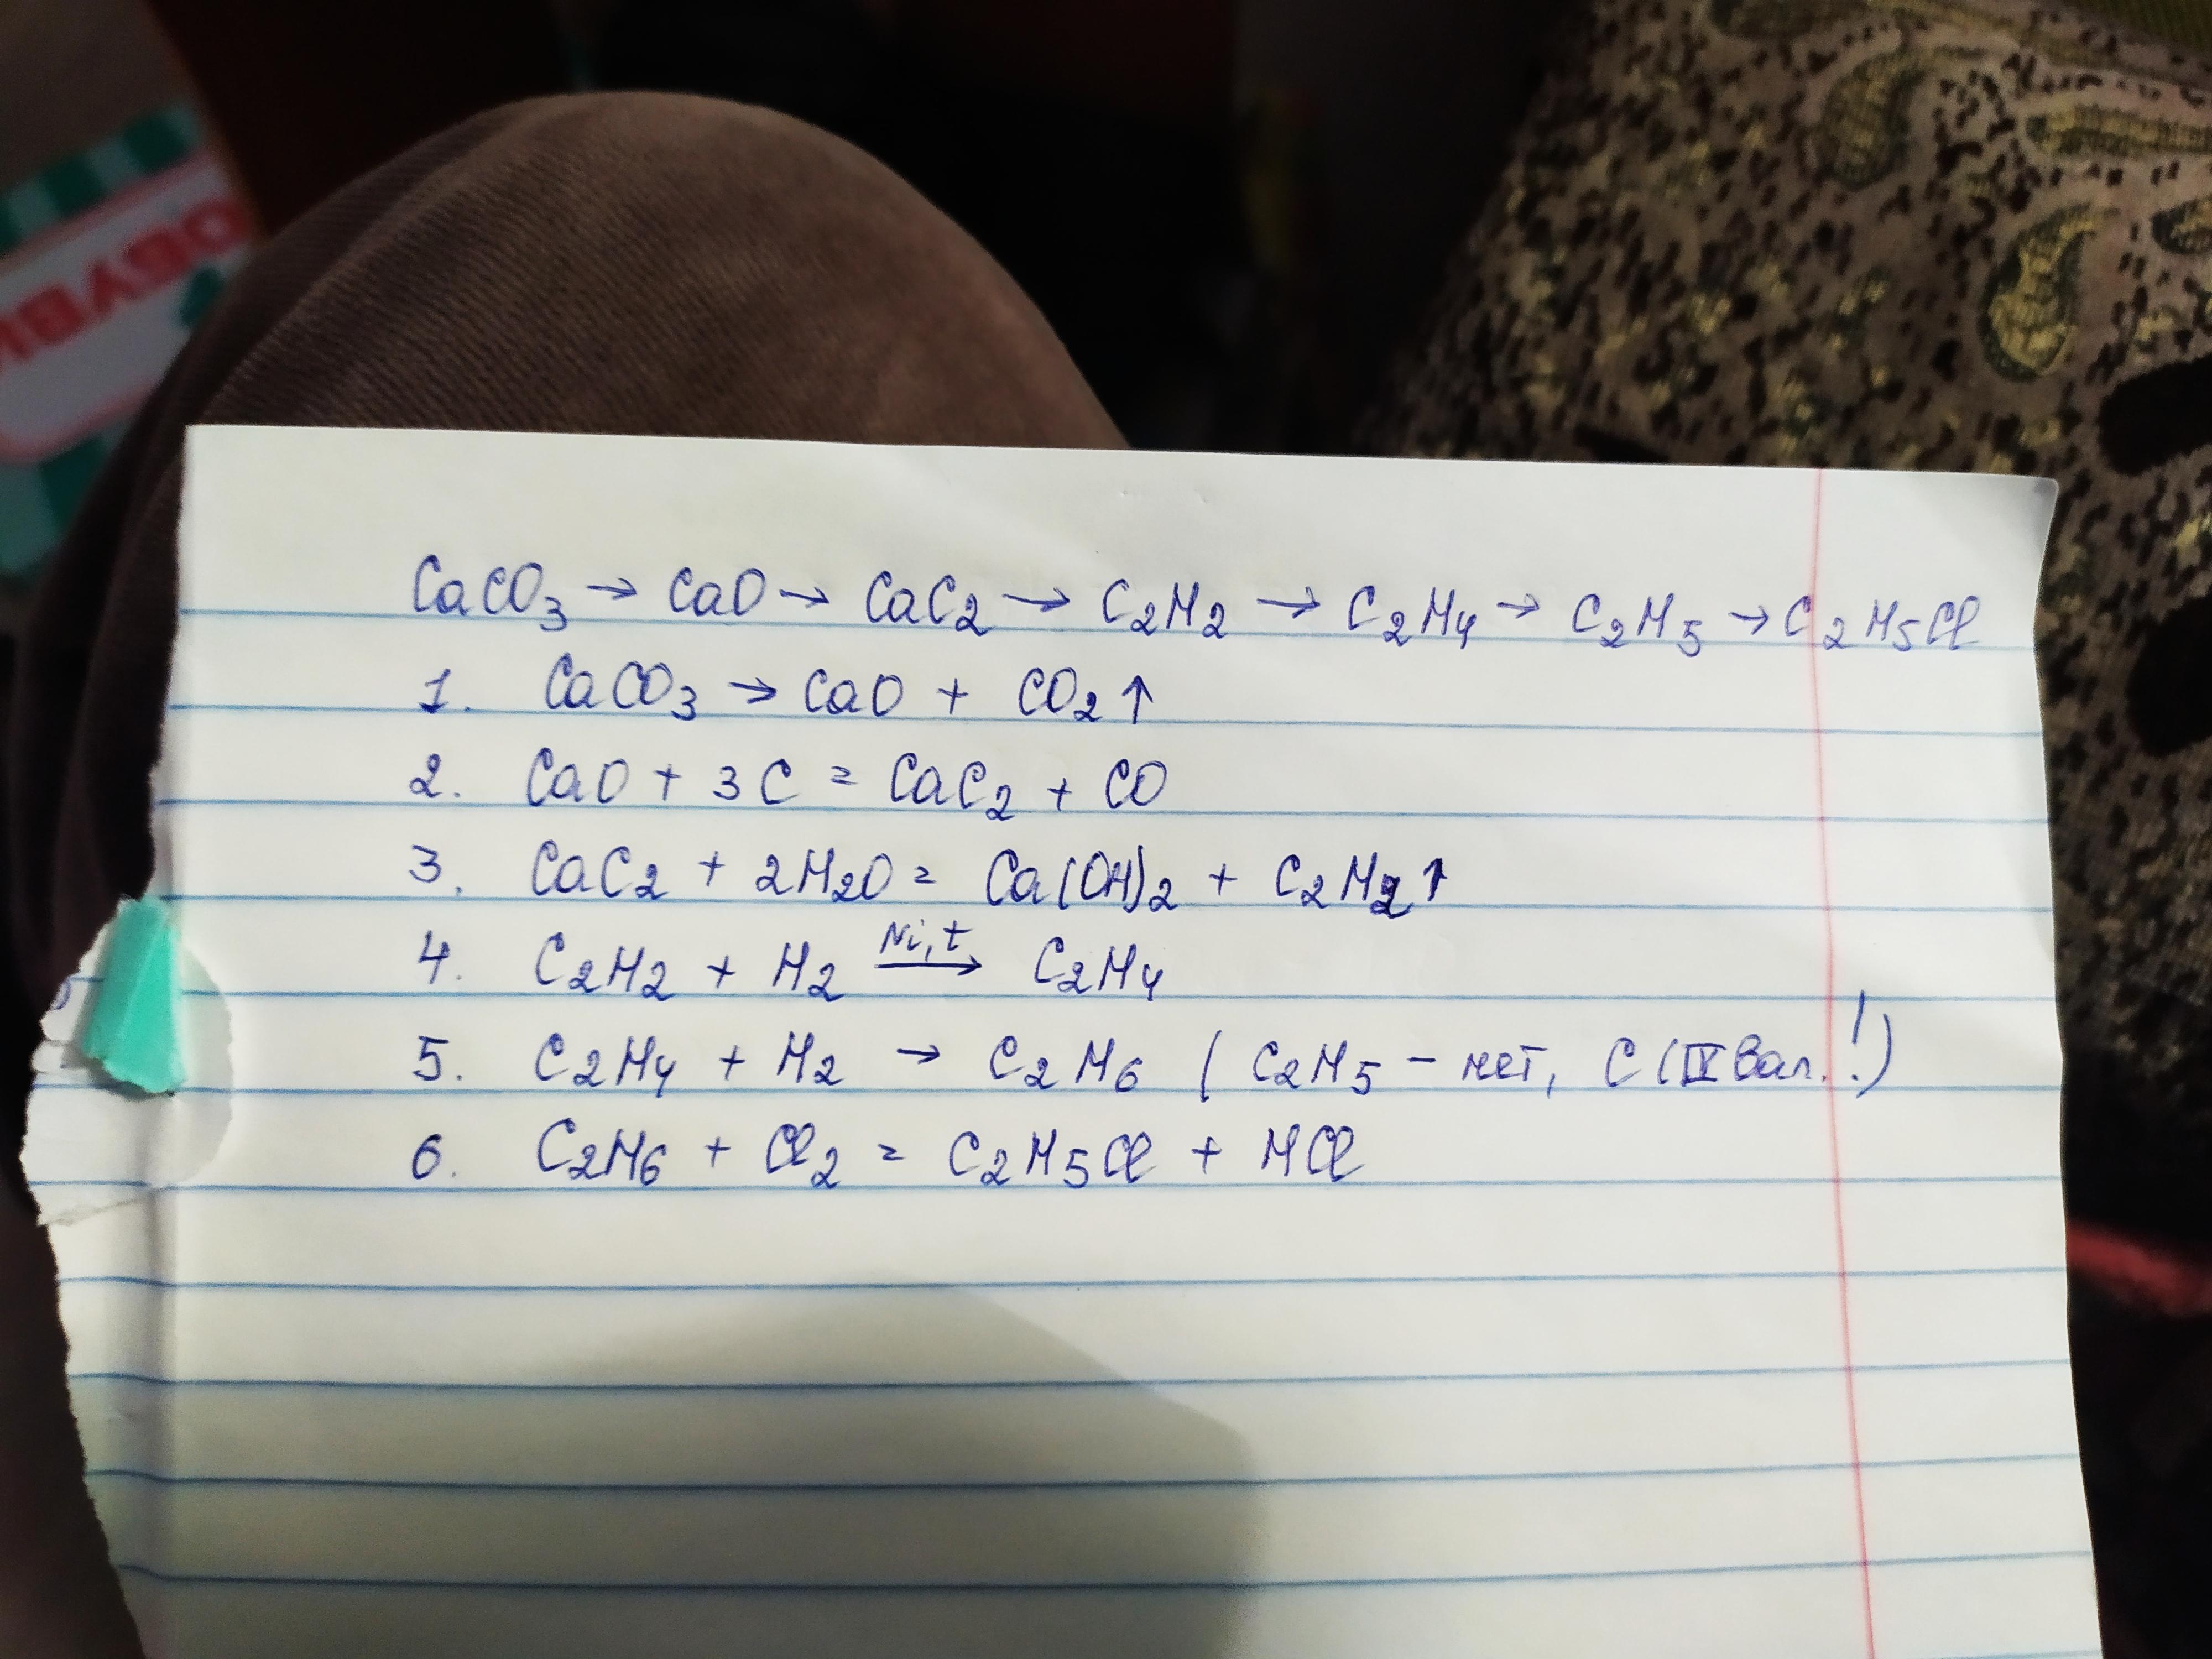 CaCO3 → CaO → CaC2 → C2H2 → C2H4 → C2H5 → C2H5Cl
1. CaCO3 → CaO + CO2↑
2. CaO + 3C = CaC2 + CO
3. CaC2 + 2H2O = Ca(OH)2 + C2H2↑
4. C2H2 + H2 Ni, t → C2H4
5. C2H4 + H2 → C2H6 (C2H5 - нет, C (IV вал.!)
6. C2H6 + Cl2 = C2H5Cl + HCl